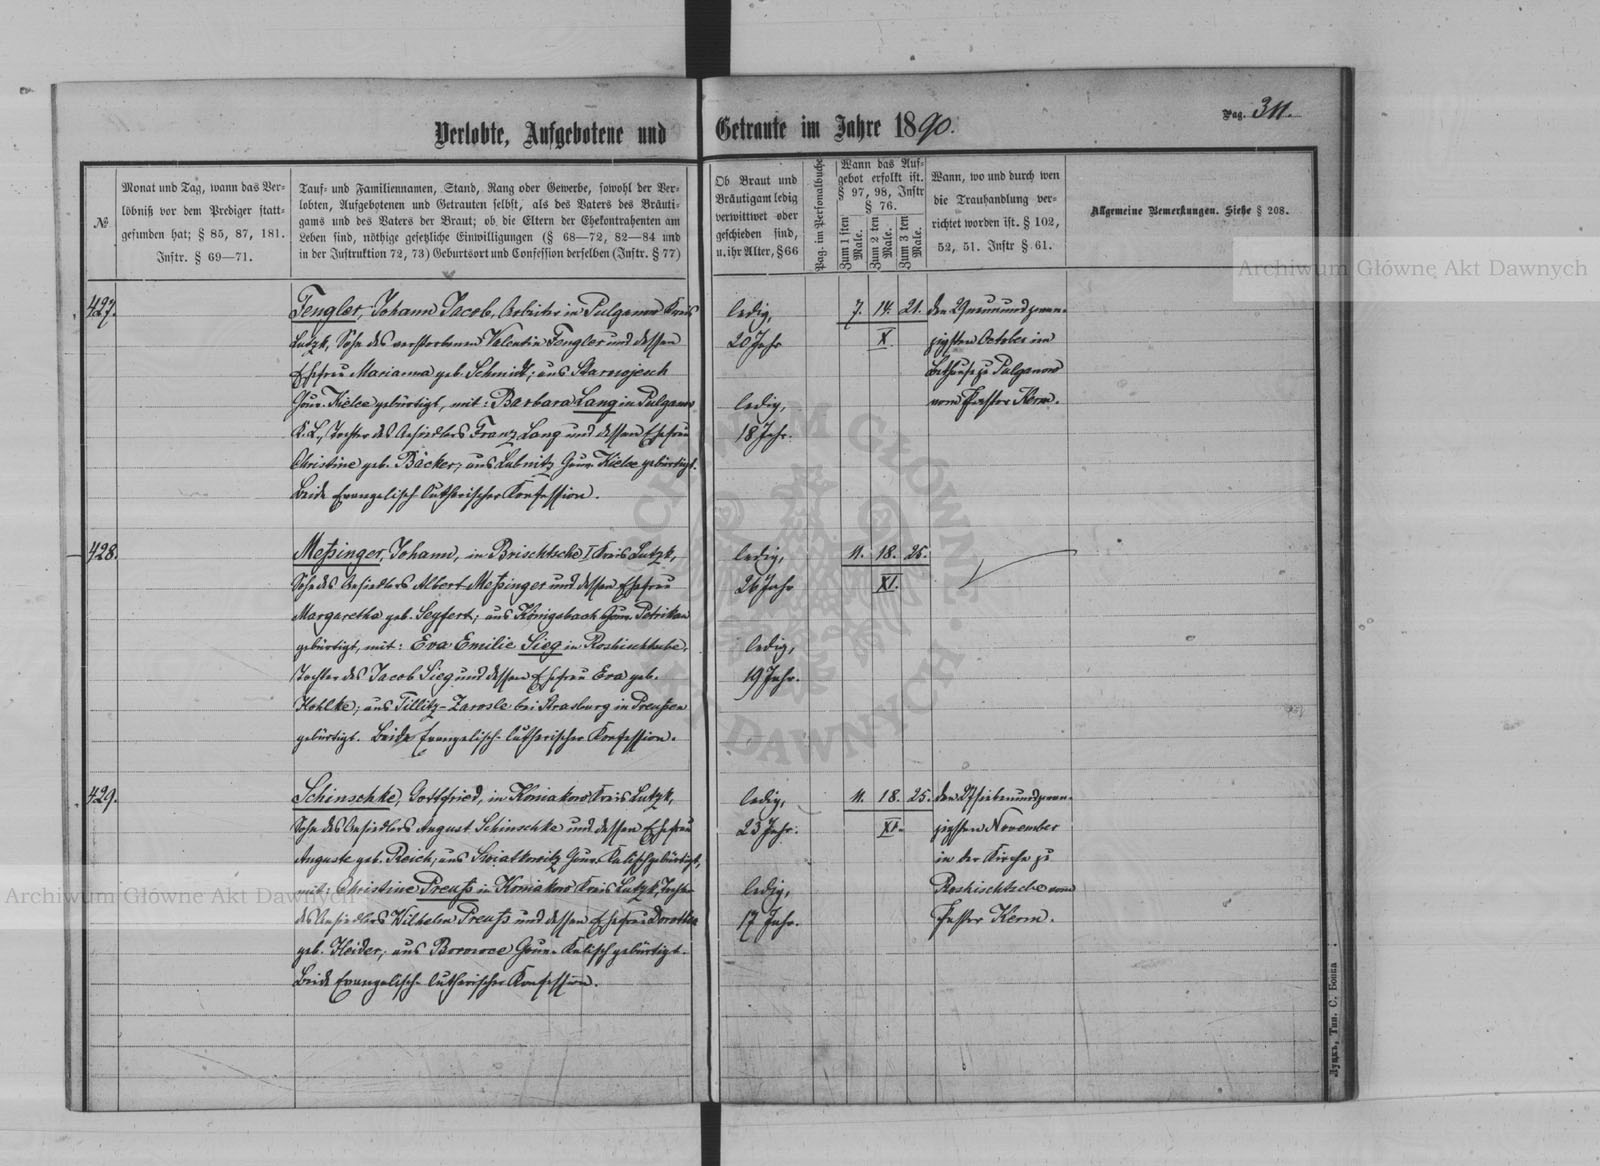 Pag. 311.
Verlobte, Aufgebotene und Getraute im Jahre 1890.
№
Monat und Tag, wann das Ver-
löbniß vor dem Prediger statt-
gefunden hat; § 85, 87, 181.
Instr. § 69—71.
Tauf- und Familiennamen, Stand, Rang oder Gewerbe, sowohl der Ver-
lobten, Aufgebotenen und Getrauten selbst, als des Vaters des Bräuti-
gams und des Vaters der Braut; ob die Eltern der Ehekontrahenten am
Leben sind, nöthige gesetzliche Einwilligungen (§ 68—72, 82—84 und
in der Instruktion 72, 73) Geburtsort und Confession derselben (Instr. § 77)
Ob Braut und
Bräutigam ledig
verwittwet oder
geschieden sind,
u. ihr Alter, § 66
Pag. im Personalbuche
Wann das Auf-
gebot erfolkt ist.
§ 97, 98, Instr
§ 76.
Zum 1 sten Male.
Zum 2 ten Male.
Zum 3 ten Male.
Wann, wo und durch wen
die Trauhandlung ver-
richtet worden ist. § 102,
52, 51. Instr § 61.
Allgemeine Bemerkungen. Siehe § 208.
427.
Fengler, Johann Jacob, Arbeiter in Pulganow Kreis
Lutzk, Sohn des verstorbenen Valentin Fengler und dessen
Ehefrau Marianna geb. Schmidt; aus
Gouv. Kielce gebürtigt, mit: Barbara Lang in Pulganow
K. L., Tochter des Ansiedlers Franz Lang und dessen Ehefrau
Christine geb. Bäcker, aus Lubnitz Gouv. Kielce gebürtigt.
Beide Evangelisch-lutherischer Konfession.
ledig,
20 Jahr
ledig,
18 Jahr.
7. 14. 21.
X.
den 29 neunundzwan-
zigsten October im
Bethause zu Pulganow
vom Pastor Kerm.
428.
Meßinger, Johann, in Brischtsche I Kreis Lutzk,
Sohn des Ansiedlers Albert Meßinger und dessen Ehefrau
Margaretha geb. Seyfert; aus Königsbach Gouv. Petrikau
gebürtigt, mit: Eva Emilie Sieg in Roshischtsche,
Tochter des Jacob Sieg und dessen Ehefrau Eva geb.
Hohlke; aus Tillitz-Zarosle bei Strasburg in Preußen
gebürtigt. Beide Evangelisch-lutherischer Konfession.
ledig,
26 Jahr
ledig,
19 Jahr.
11. 18. 25.
XI.
429.
Schinschke, Gottfried, in Koniakow Kreis Lutzk,
Sohn des Ansiedlers August Schinschke und dessen Ehefrau
Auguste geb. Reich; aus Swiatkowitz Gouv. Kalisch gebürtigt,
mit: Christine Preuß in Koniakow Kreis Lutzk, Tochter
des Ansiedlers Wilhelm Preuß und dessen Ehefrau Dorothea
geb. Heider; aus Gouv. Kalisch gebürtigt.
Beide Evangelisch-lutherischer Konfession.
ledig,
23 Jahr.
ledig,
17 Jahr.
11. 18. 25.
XI.
den 27 siebenundzwan-
zigsten November
in der Kirche zu
Roshischtsche vom
Pastor Kerm.
Луцкъ, Тип. С. Бокка
Archiwum Główne Akt Dawnych
Archiwum Główne Akt Dawnych
ARCHIWUM GŁÓWNE AKT DAWNYCH